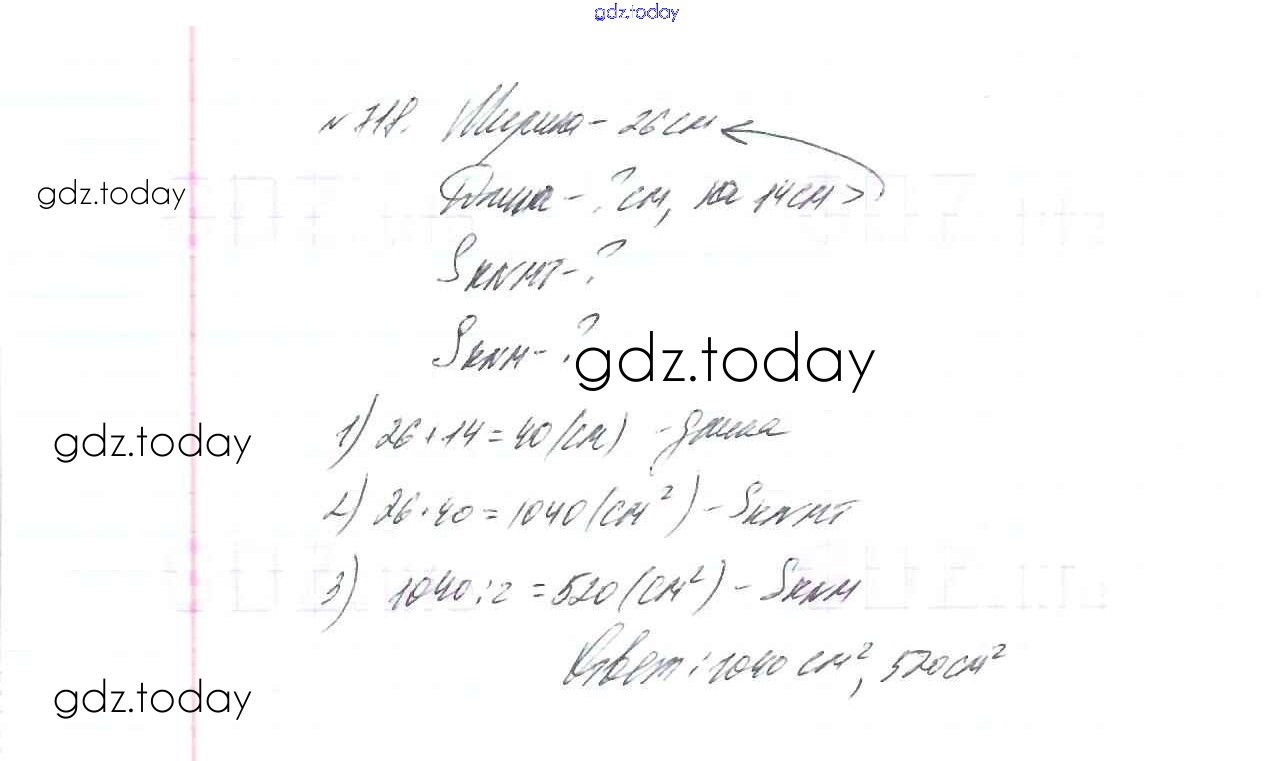 gdz.today
№718. Ширина - 26см
Длина - ?см, на 14см >
gdz.today
SKNMT - ?
SKNM - ?
gdz.today
1) 26+14=40(см) - длина
gdz.today
2) 26·40=1040(см²) - SKNMT
3) 1040:2=520(см²) - SKNM
Ответ: 1040 см², 520см²
gdz.today